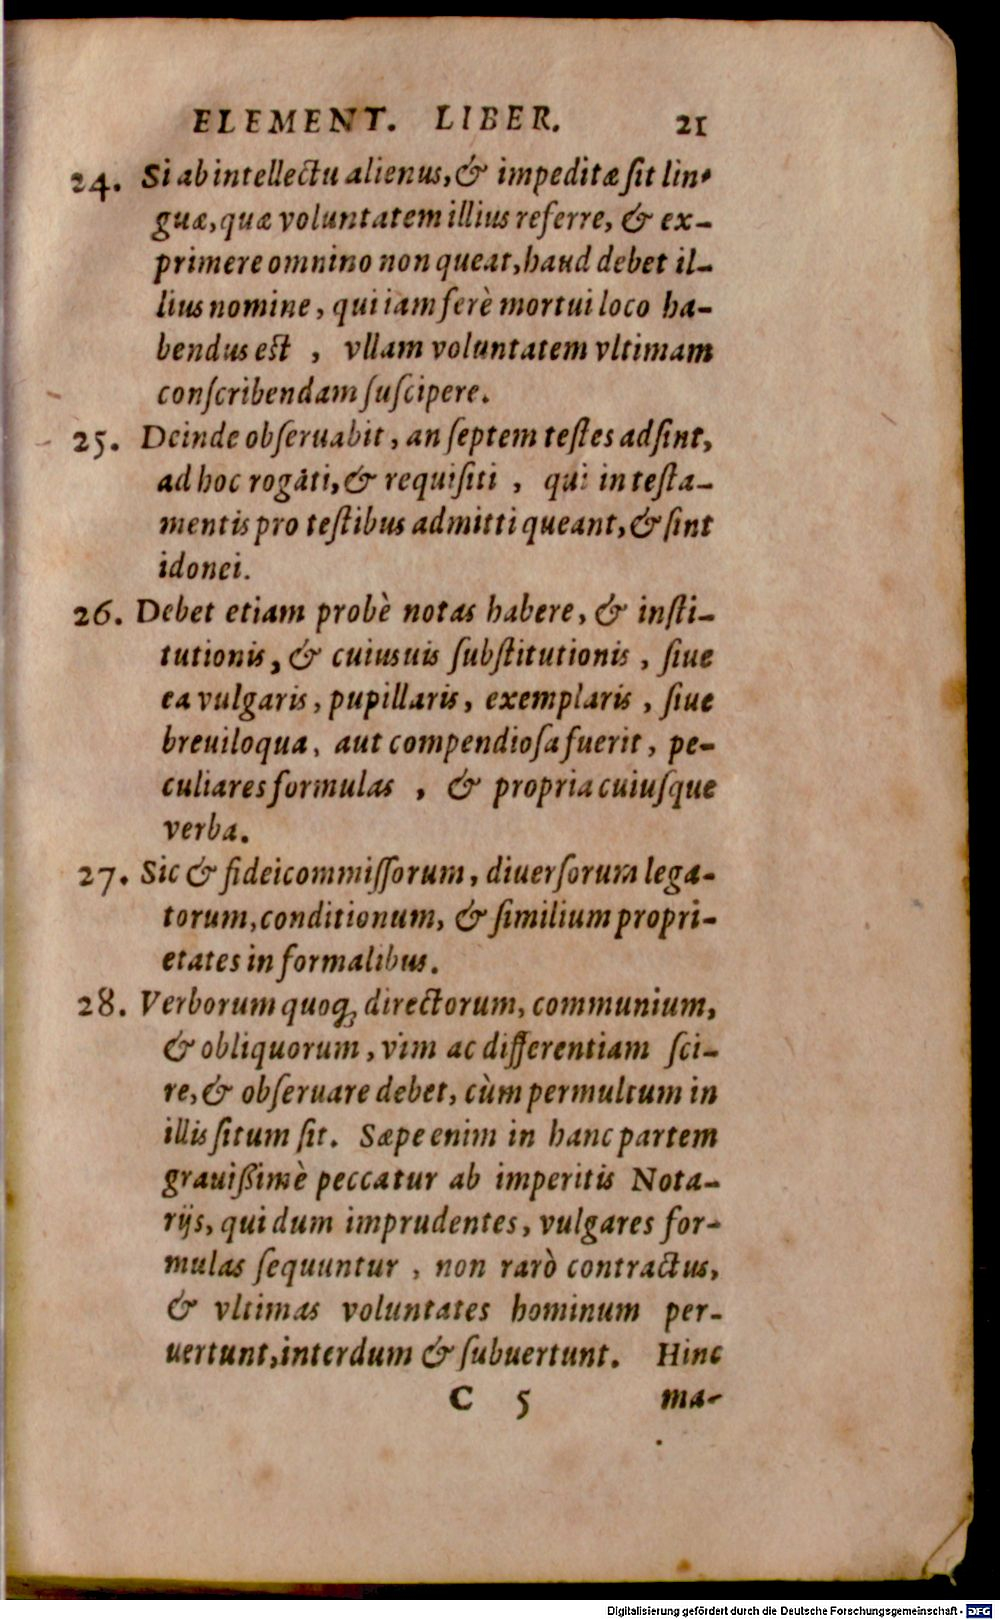 ELEMENT. LIBER. 21
24. Si ab intellectu alienus, & impeditæ ſit lin-
guæ, quæ voluntatem illius referre, & ex-
primere omnino non queat, haud debet il-
lius nomine, qui iam ferè mortui loco ha-
bendus eſt , vllam voluntatem vltimam
conſcribendam ſuſcipere.
25. Deinde obſeruabit, an ſeptem teſtes adſint,
ad hoc rogāti, & requiſiti , qui in teſta-
mentis pro teſtibus admitti queant, & ſint
idonei.
26. Debet etiam probè notas habere, & inſti-
tutionis, & cuiusuis ſubſtitutionis , ſiue
ea vulgaris, pupillaris, exemplaris , ſiue
breuiloqua, aut compendioſa fuerit, pe-
culiares formulas , & propria cuiuſque
verba.
27. Sic & fideicommiſſorum, diuerſorum lega-
torum, conditionum, & ſimilium propri-
etates in formalibus.
28. Verborum quoq; directorum, communium,
& obliquorum, vim ac differentiam ſci-
re, & obſeruare debet, cùm permultum in
illis ſitum ſit. Sæpe enim in hanc partem
grauißimè peccatur ab imperitis Nota-
rijs, qui dum imprudentes, vulgares for-
mulas ſequuntur , non rarò contractus,
& vltimas voluntates hominum per-
uertunt, interdum & ſubuertunt. Hinc
C 5 ma-
Digitalisierung gefördert durch die Deutsche Forschungsgemeinschaft - DFG